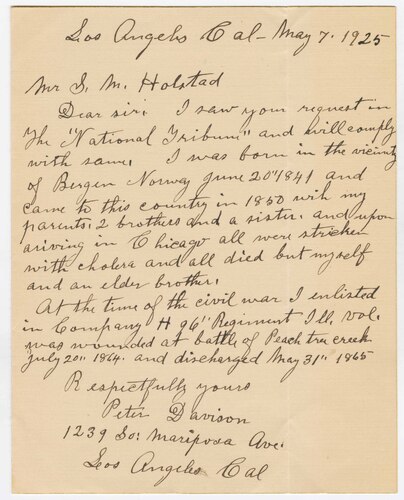 Los Angeles Cal - May 7. 1925
Mr S. M. Holstad
Dear sir. I saw your request in
the "National Tribune" and will comply
with same. I was born in the vicinity
of Bergen Norway June 20" 1841 and
came to this country in 1850 with my
parents. 2 brothers and a sister. and upon
ariving in Chicago all were stricken
with cholera and all died but myself
and an elder brother.
At the time of the civil war I enlisted
in Company H 96" Regiment Ill. Vol.
was wounded at battle of Peach tree creek.
July 20" 1864. and discharged May 31" 1865
Respectfully yours
Peter Davison
1239 So: Mariposa Ave.
Los Angeles Cal